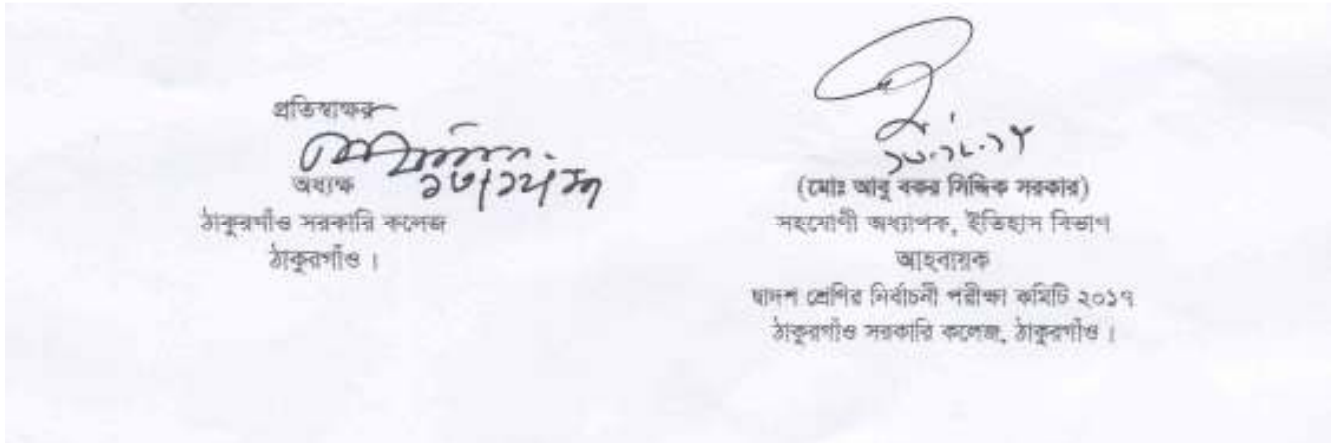 প্রতিস্বাক্ষর
অধ্যক্ষ
ঠাকুরগাঁও সরকারি কলেজ
ঠাকুরগাঁও ।
(মোঃ আবু বকর সিদ্দিক সরকার)
সহযোগী অধ্যাপক, ইতিহাস বিভাগ
আহবায়ক
দ্বাদশ শ্রেণির নির্বাচনী পরীক্ষা কমিটি ২০১৭
ঠাকুরগাঁও সরকারি কলেজ, ঠাকুরগাঁও ।